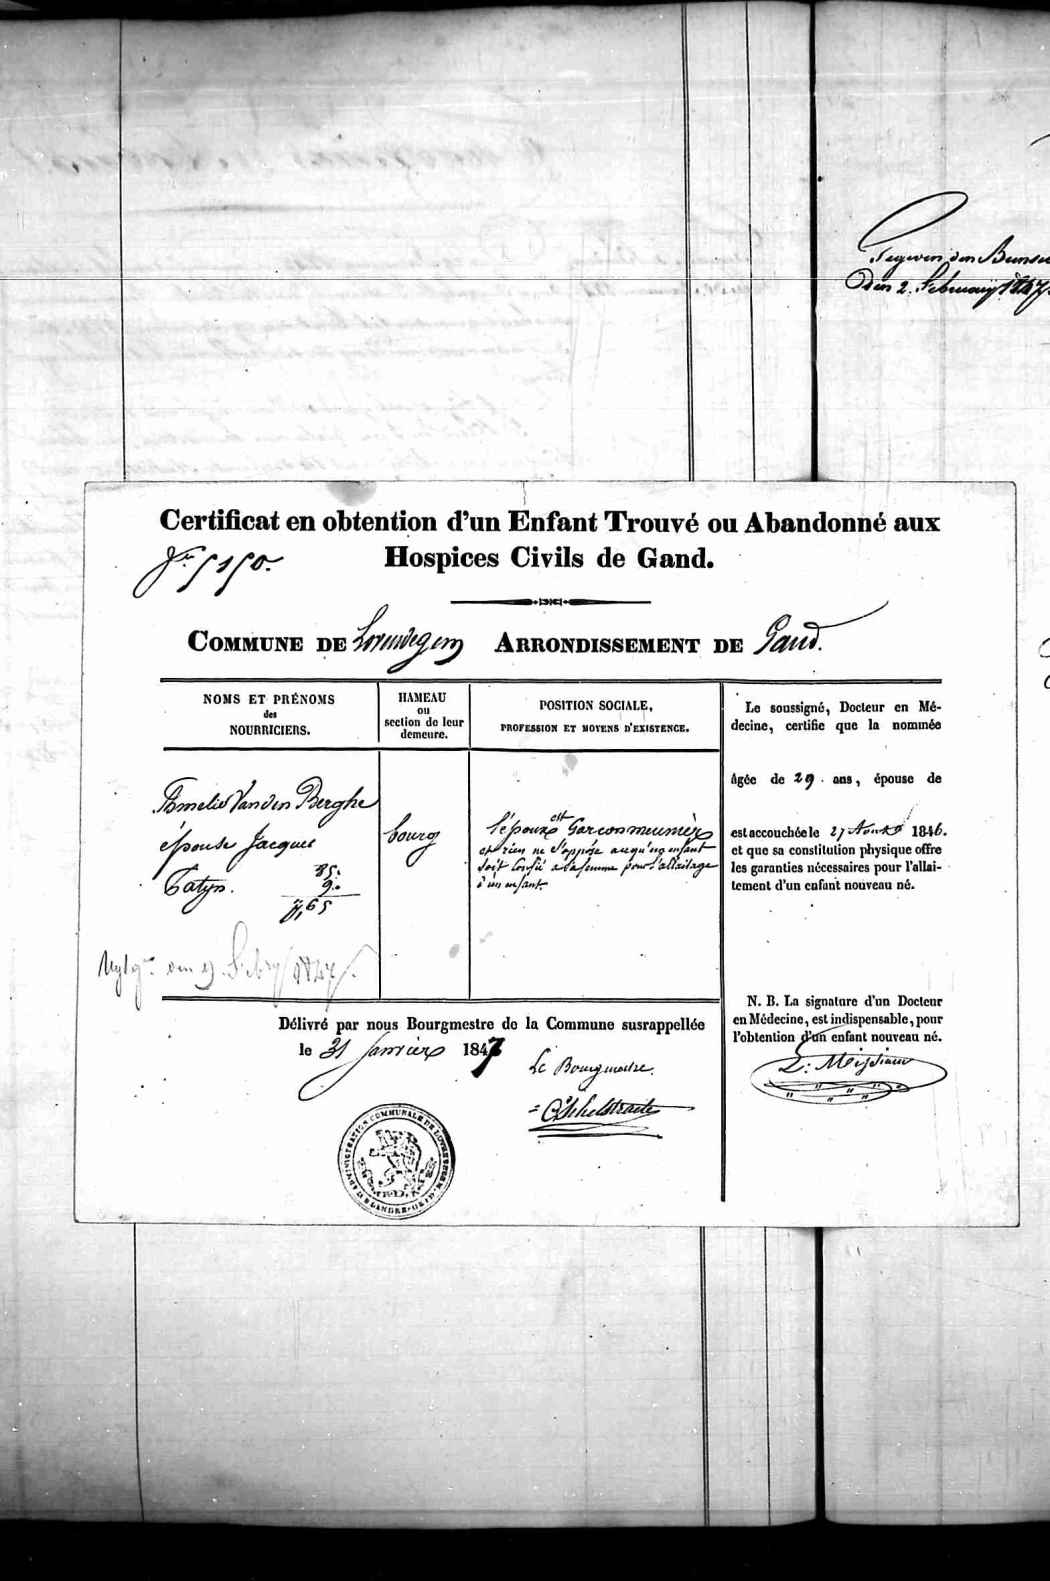 Gegeven den
den 2. February 1847.
Certificat en obtention d'un Enfant Trouvé ou Abandonné aux
Hospices Civils de Gand.
5150.
COMMUNE DE Lovendegem ARRONDISSEMENT DE Gand.
NOMS ET PRÉNOMS
des
NOURRICIERS.
HAMEAU
ou
section de leur
demeure.
POSITION SOCIALE,
PROFESSION ET MOYENS D'EXISTENCE.
Amelie Vanden Berghe
épouse Jacques
Tatyn.
85.
9.
7,65
bourg
l'époux est Garcon meunier
et rien ne s'oppose a ce qu'un enfant
soit confié a sa femme pour l'allaitage
d'un enfant
den 2 Febry 1847.
Le soussigné, Docteur en Mé-
decine, certifie que la nommée
âgée de 29 ans, épouse de
est accouchée le 27 Août 1846.
et que sa constitution physique offre
les garanties nécessaires pour l'allai-
tement d'un enfant nouveau né.
N. B. La signature d'un Docteur
en Médecine, est indispensable, pour
l'obtention d'un enfant nouveau né.
Délivré par nous Bourgmestre de la Commune susrappellée
le 31 Janvier 1847
Le Bourgmestre.
ADMINISTRATION COMMUNALE DE